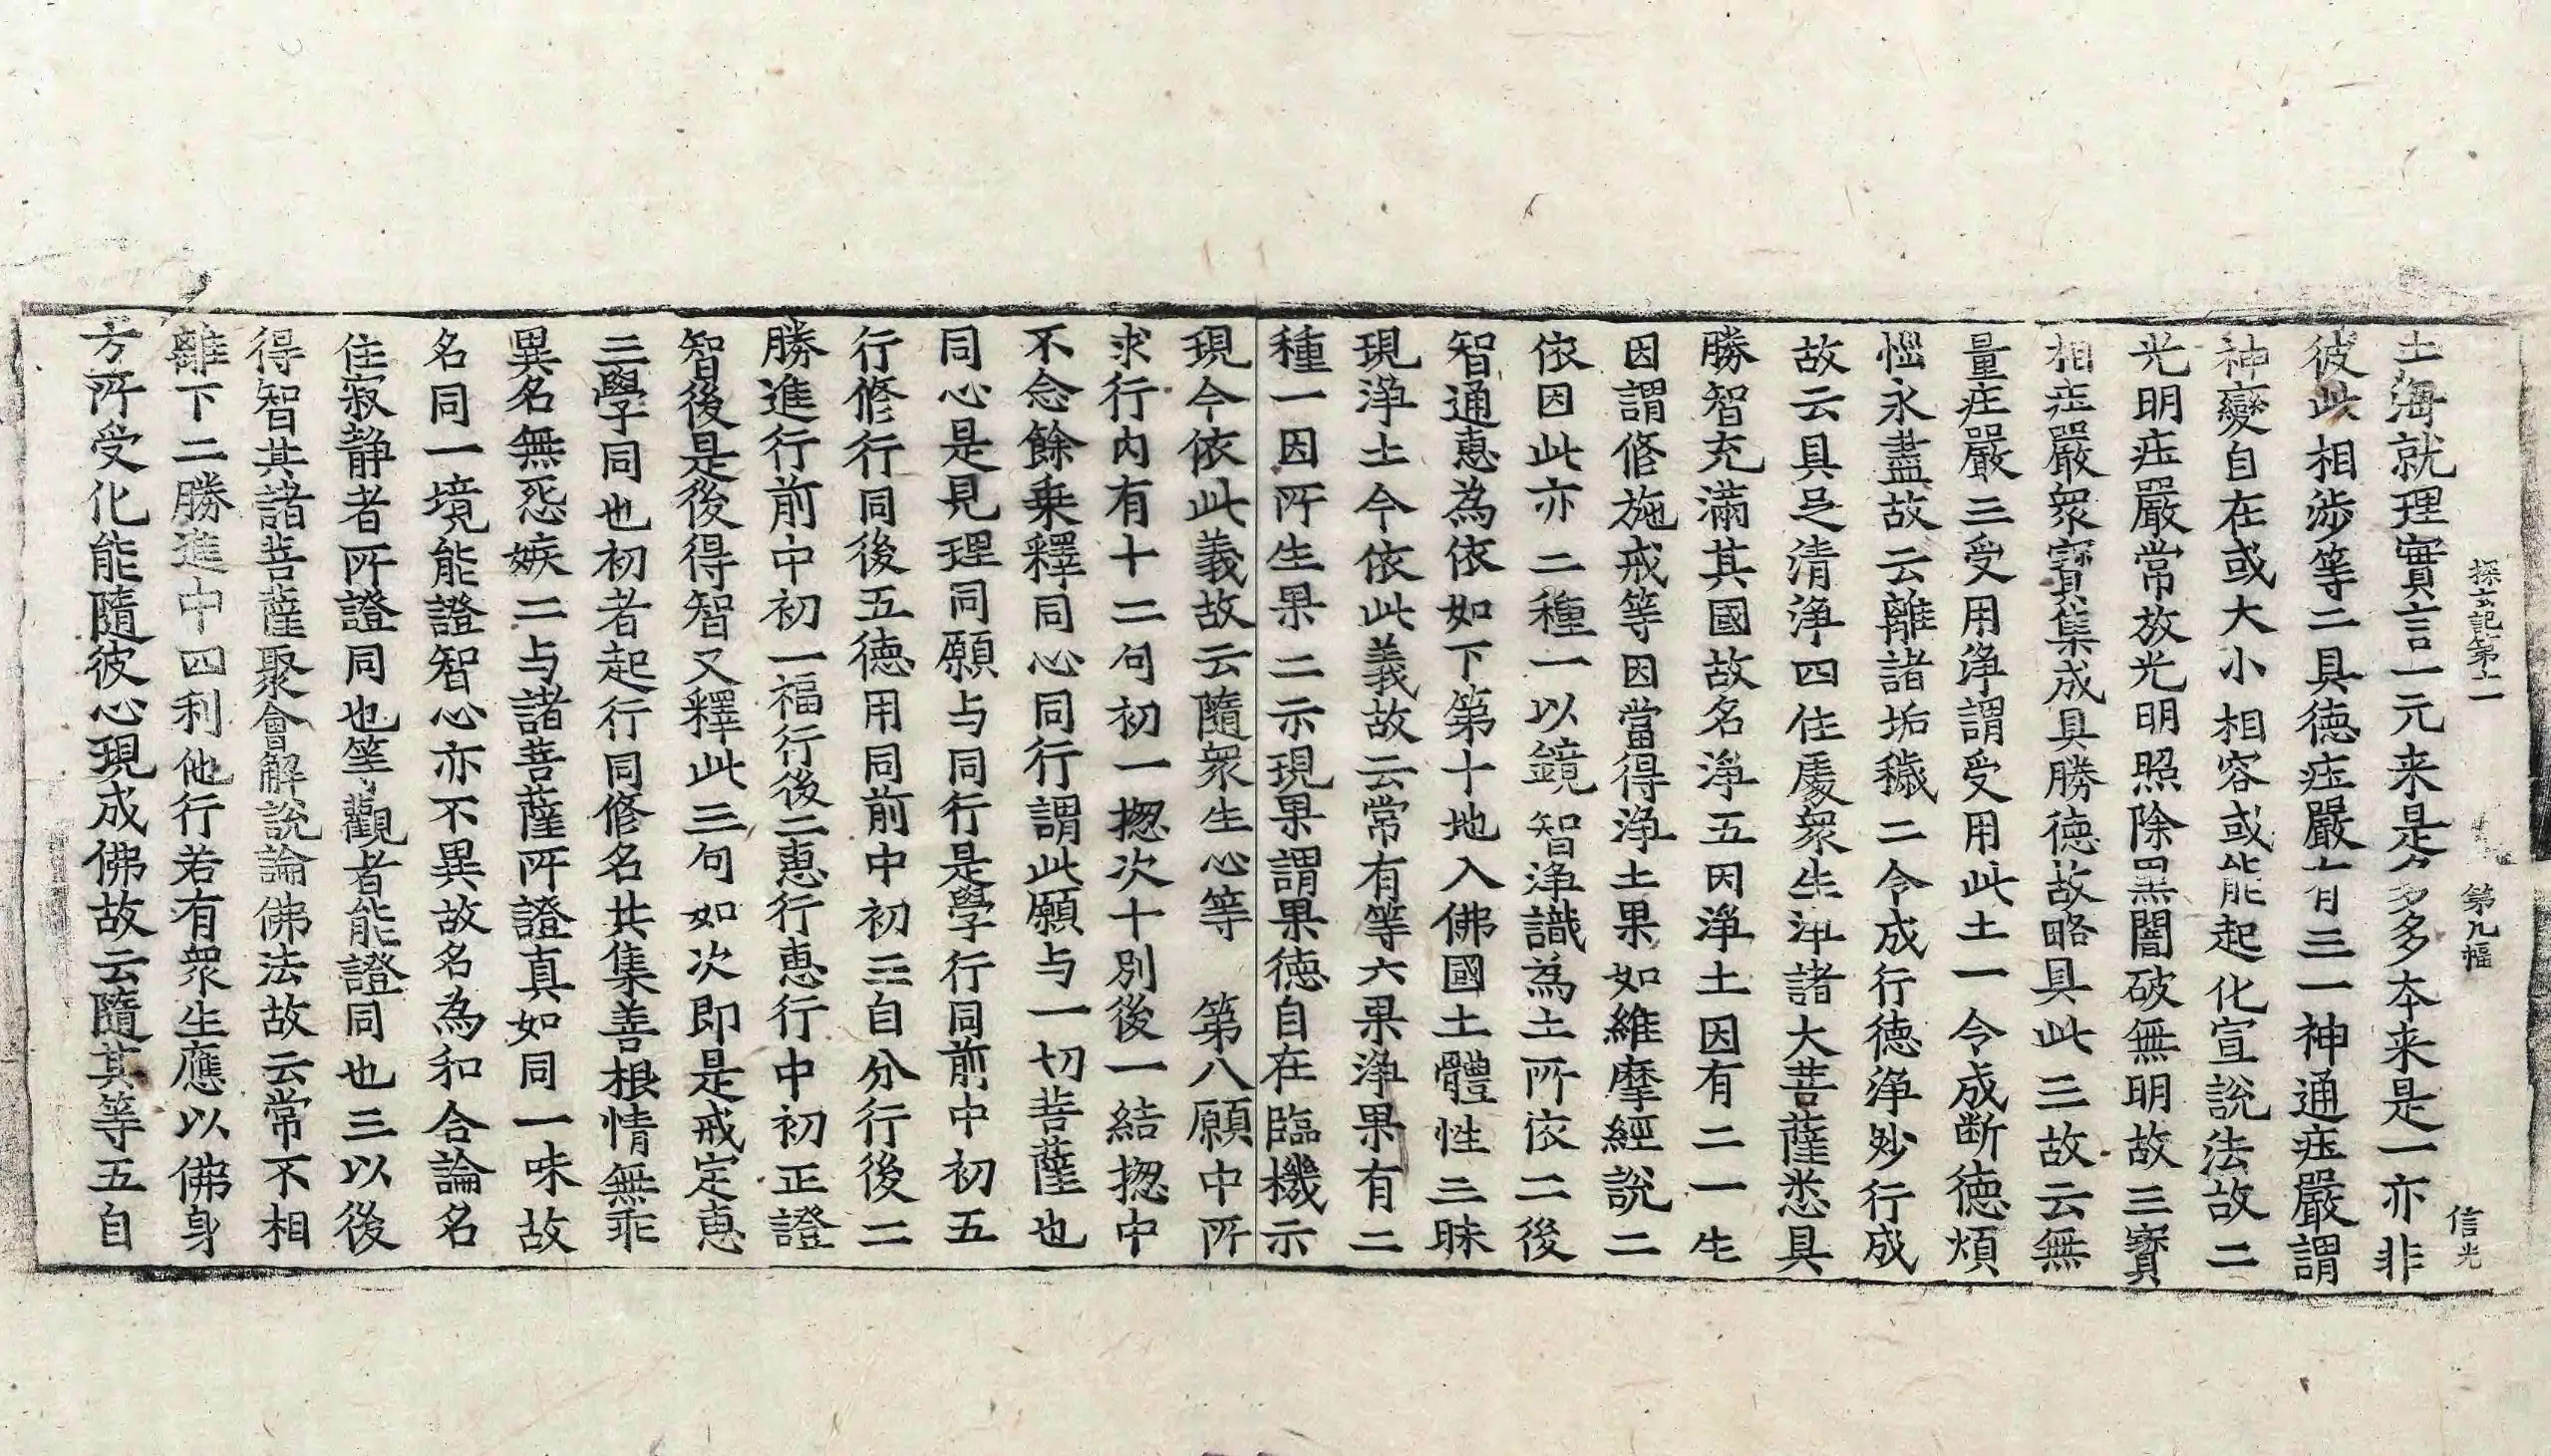 探玄記第十一 第九幅 信光
土海就理實言一元来是多多本来是一亦非
彼此相涉等二具徳庄嚴有三一神通庄嚴謂
神變自在或大小相容或能起化宣說法故二
光明庄嚴常放光明照除黑闇破無明故三寶
相庄嚴衆寶集成具勝徳故略具此三故云無
量庄嚴三受用淨謂受用此土一令成断徳煩
惱永盡故云離諸垢穢二令成行徳淨妙行成
故云具足清淨四住處衆生淨諸大菩薩悉具
勝智充滿其國故名淨五因淨土因有二一生
因謂修施戒等因當得淨土果如維摩經說二
依因此亦二種一以鏡智淨識為土所依二後
智通恵為依如下第十地入佛國土體性三昧
現淨土今依此義故云常有等六果淨果有二
種一因所生果二示現果謂果徳自在臨機示
現今依此義故云隨衆生心等　第八願中所
求行内有十二句初一揔次十別後一結揔中
不念餘乗釋同心同行謂此願与一切菩薩也
同心是見理同願与同行是學行同前中初五
行修行同後五徳用同前中初三自分行後二
勝進行前中初一福行後二恵行恵行中初正證
智後是後得智又釋此三句如次即是戒定恵
三學同也初者起行同修名共集善根情無乖
異名無惡嫉二与諸菩薩所證真如同一味故
名同一境能證智心亦不異故名為和合論名
住寂静者所證同也等觀者能證同也三以後
得智其諸菩薩聚會解說論佛法故云常不相
離下二勝進中四利他行若有衆生應以佛身
方所受化能隨彼心現成佛故云隨其等五自